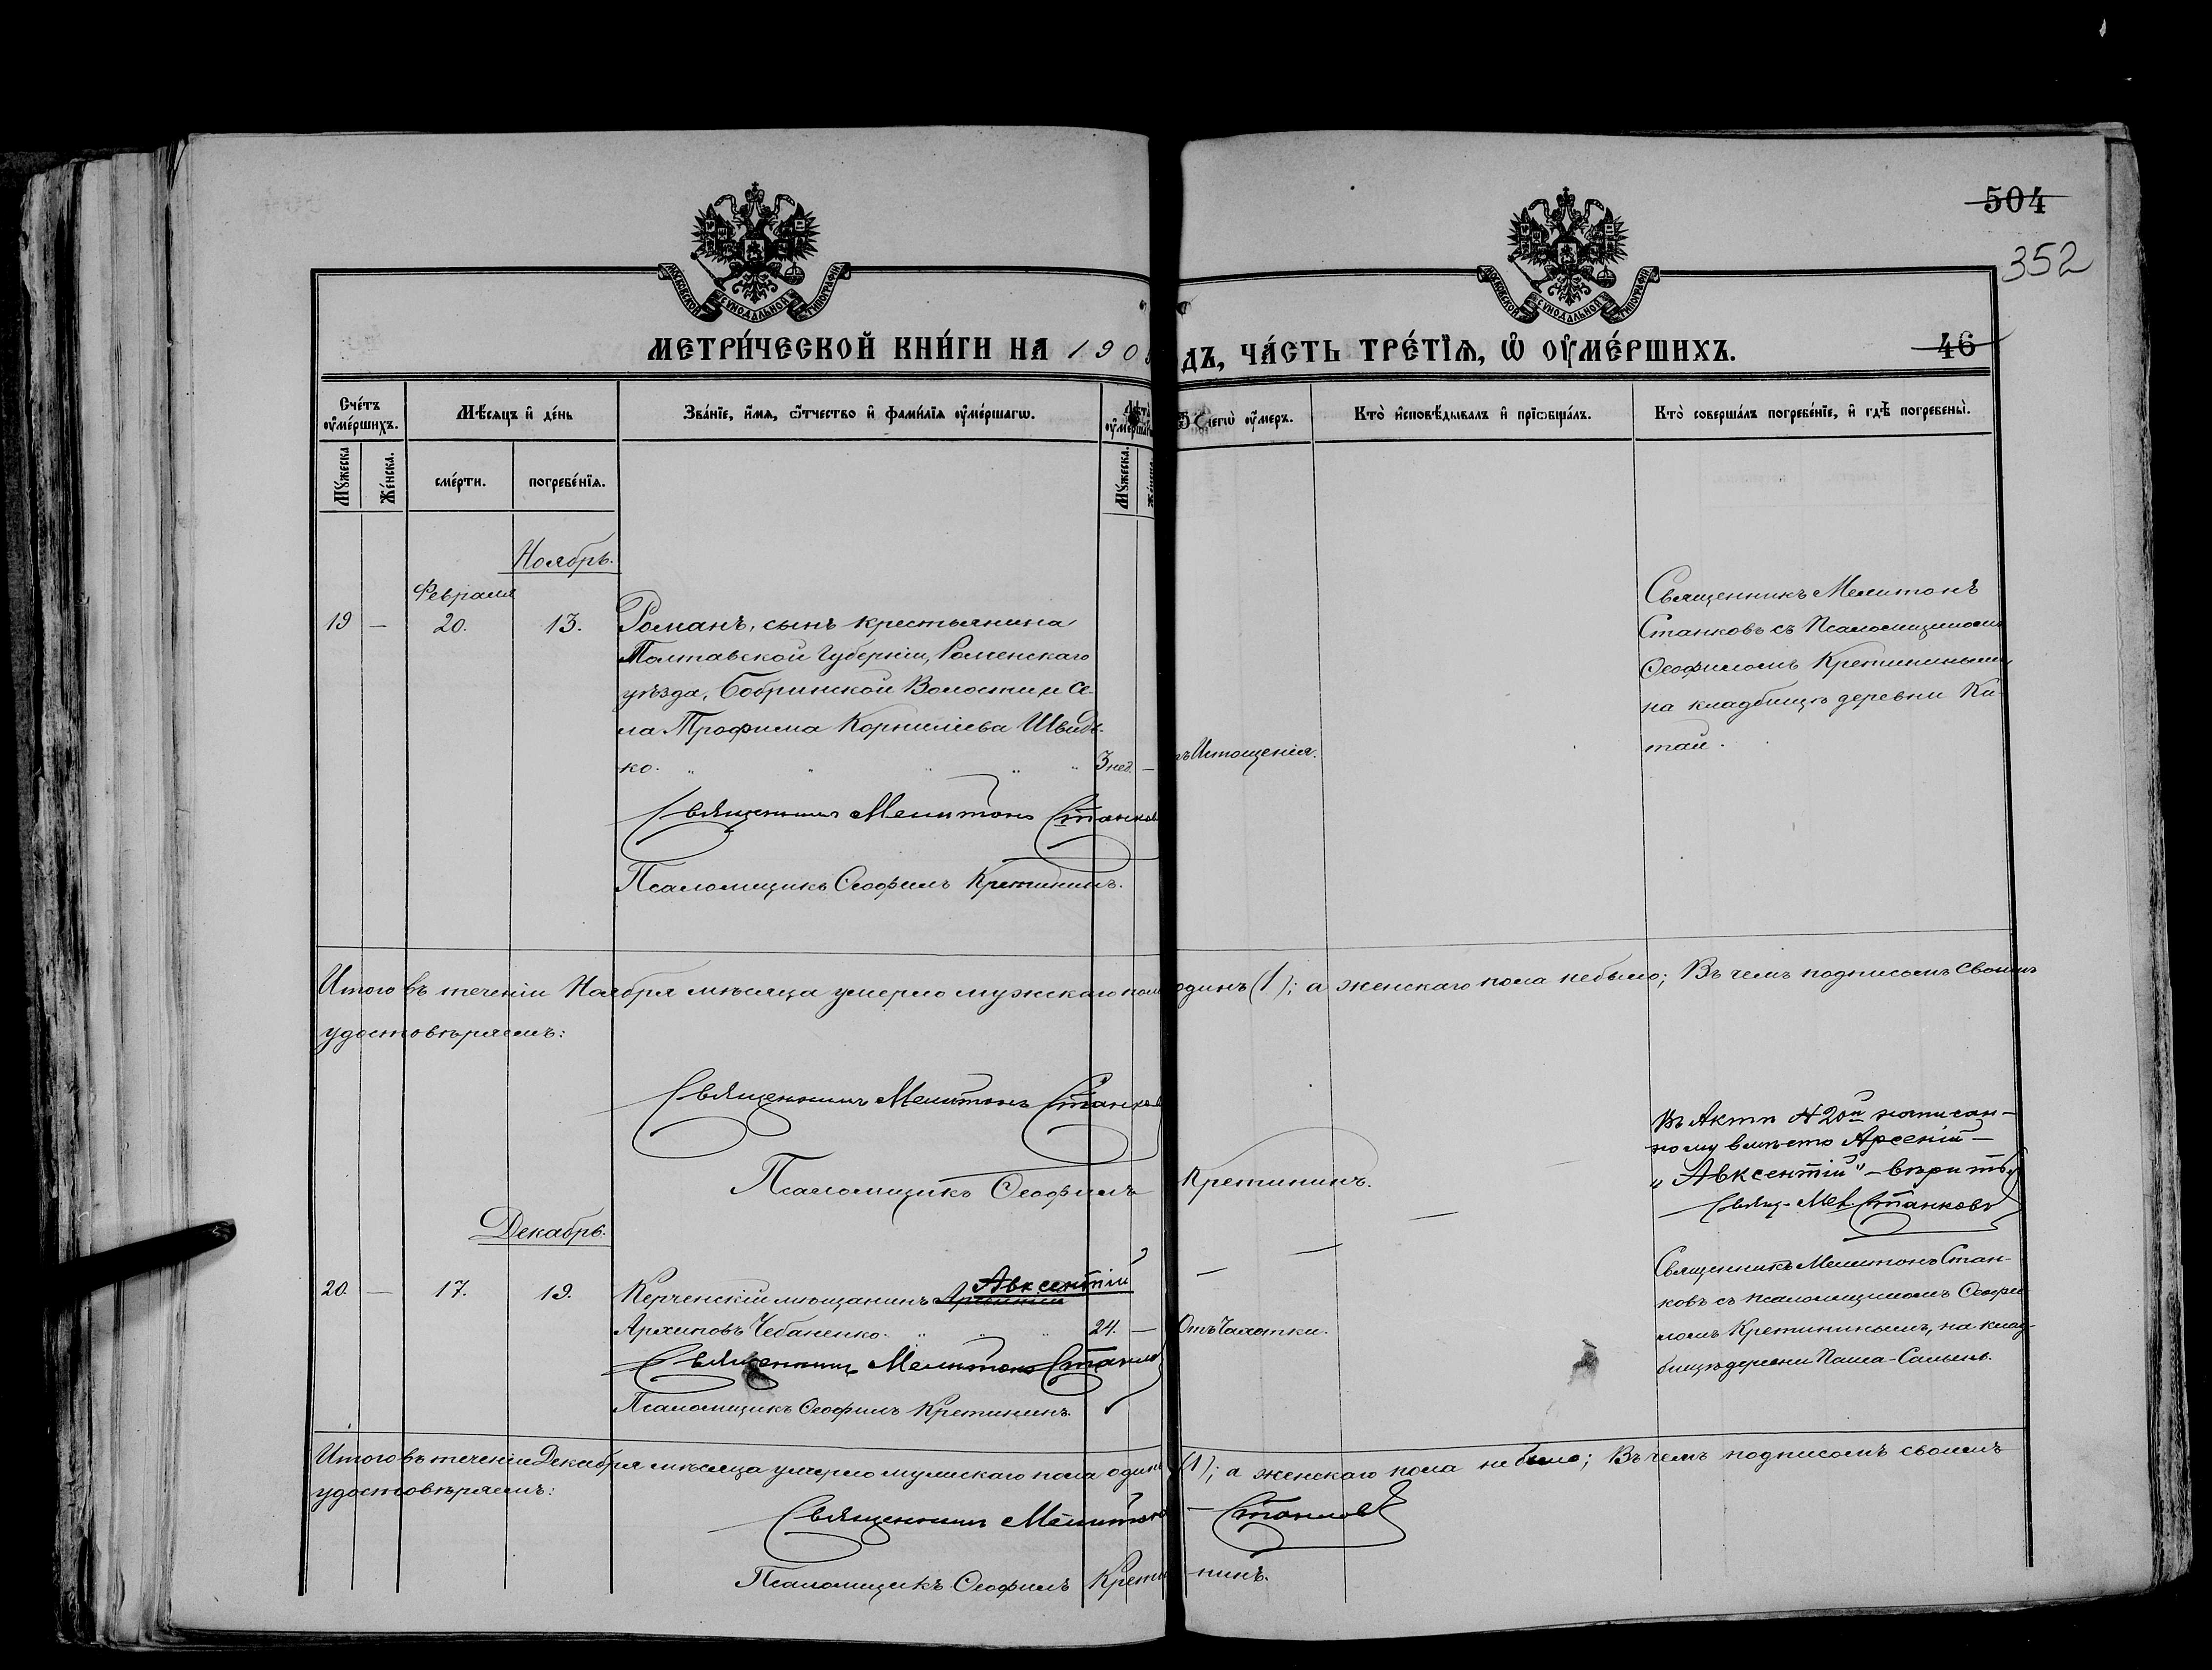 504
352
МОСКОВСКОЙ СУНОДАЛЬНОЙ ТИПОГРАФІИ
МОСКОВСКОЙ СУНОДАЛЬНОЙ ТИПОГРАФІИ
МЕТРИ́ЧЕСКОЙ КНИ́ГИ НА 190
ДЪ, ЧА́СТЬ ТРЕ́ТЇѦ, Ѡ ОУМЕ́РШИХЪ.
46
Сче́тъ оумéршихъ.
Мѣ́сяцъ и де́нь
Зва́нїе, и́мѧ, ѻ҆́тчество и фами́лїѧ оумéршагѡ.
Лѣта оумершаг
чегѡ̀ оу́мер.
Кто̀ и҆сповѣ́дывалъ и҆ прїѻбща́лъ.
Кто̀ соверша́лъ погребе́нїе, и҆ гдѣ̀ погребены̀.
Му́жеска
Же́нска.
сме́рти.
погребе́нїѧ.
Му́жеска.
Ноябрь.
Февраля
19 — 20. 13. Романъ, сынъ крестьянина
Полтавской Губерніи, Роменскаго
уѣзда, Бобринской Волости и Се-
ла Трофима Корниліева Швидь-
ко. 3 нед. —
ъ Истощенія.
Священникъ Мелитонъ
Станковъ съ Псаломщикомъ
Ѳеофиломъ Кретининымъ,
на кладбищѣ деревни Ки-
тай.
Священникъ Мелитонъ Станков
Псаломщикъ Ѳеофилъ Кретининъ.
Итого въ теченіи Ноября мѣсяца умерло мужскаго пола одинъ (1); а женскаго пола небыло; Въ чемъ подписомъ своимъ
удостовѣряемъ:
Священникъ Мелитонъ Станков
Псаломщикъ Ѳеофилъ Кретининъ.
Въ Актѣ № 20й написан-
ному вмѣсто Арсеній —
„Авксентій“ — вѣрить
Свящ. Мел. Станковъ
Декабрь.
Авксентій
20. — 17. 19. Керченскій мѣщанинъ Арсеній
Архиповъ Чебаненко. 24. —
Отъ Чахотки.
Священникъ Мелитонъ Стан-
ковъ съ псаломщикомъ Ѳеофи-
ломъ Кретининымъ, на клад-
бищѣ деревни Паша-Салынь.
Священникъ Мелитонъ Станков
Псаломщикъ Ѳеофилъ Кретининъ.
Итого въ теченіи Декабря мѣсяца умерло мужскаго пола одинъ (1); а женскаго пола небыло; Въ чемъ подписомъ своимъ
удостовѣряемъ:
Священникъ Мелитонъ — Станковъ
Псаломщикъ Ѳеофилъ Крети-нинъ.